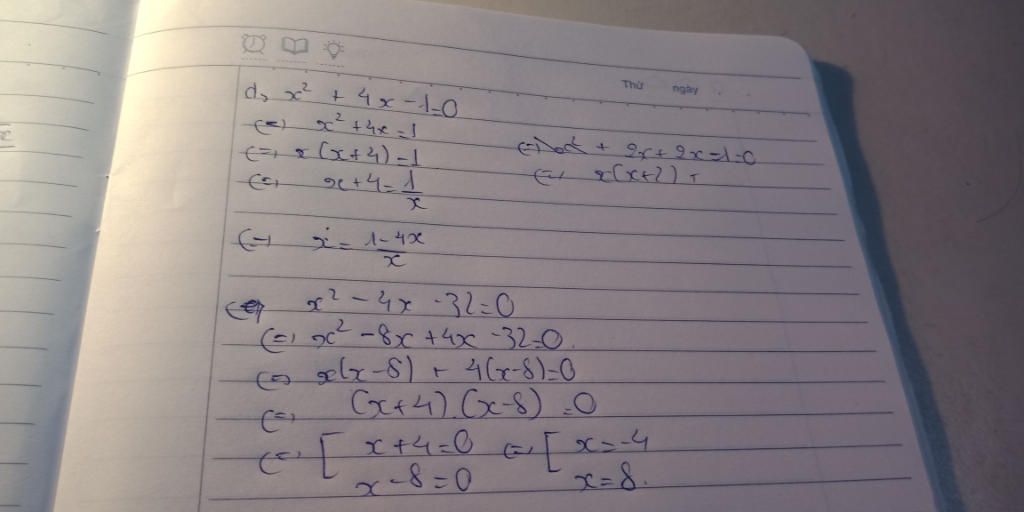 Thứ ngày
d, x² + 4x - 1 = 0
(=) x² + 4x = 1
(=) x(x+4) = 1
(=) x + 4 = 1/x
(=) + 2x + 2x = 1 = 0
(=) x(x+2) +
(=) x = (1 - 4x)/x
x² - 4x - 32 = 0
(=) x² - 8x + 4x - 32 = 0.
(=) x(x-8) + 4(x-8) = 0
(=) (x+4).(x-8) = 0
(=) [ x + 4 = 0 (=) [ x = -4
x - 8 = 0 x = 8.